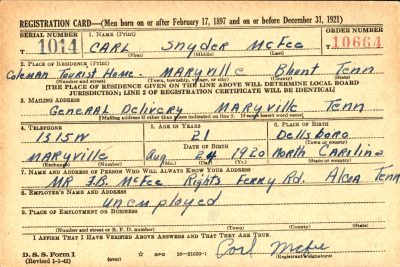 REGISTRATION CARD—(Men born on or after February 17, 1897 and on or before December 31, 1921)
SERIAL NUMBER 1. NAME (Print) ORDER NUMBER
T 1014 CARL Snyder McFee T 10664
(First) (Middle) (Last)
2. PLACE OF RESIDENCE (Print)
Coleman Tourist Home MARYVILLE Blunt Tenn
(Number and street) (Town, township, village, or city) (County) (State)
[THE PLACE OF RESIDENCE GIVEN ON THE LINE ABOVE WILL DETERMINE LOCAL BOARD
JURISDICTION; LINE 2 OF REGISTRATION CERTIFICATE WILL BE IDENTICAL]
3. MAILING ADDRESS
General Delivery MARYVILLE Tenn
[Mailing address if other than place indicated on line 2. If same insert word same]
4. TELEPHONE 5. AGE IN YEARS 6. PLACE OF BIRTH
1515W 21 Dellsboro
DATE OF BIRTH (Town or county)
MARYVILLE Aug 24 1920 North Carolina
(Exchange) (Number) (Mo.) (Day) (Yr.) (State or country)
7. NAME AND ADDRESS OF PERSON WHO WILL ALWAYS KNOW YOUR ADDRESS
MR. McFee Rights Ferry Rd. Alcoa Tenn
8. EMPLOYER'S NAME AND ADDRESS
Unemployed
9. PLACE OF EMPLOYMENT OR BUSINESS
(Number and street or R. F. D. number) (Town) (County) (State)
I AFFIRM THAT I HAVE VERIFIED ABOVE ANSWERS AND THAT THEY ARE TRUE.
D. S. S. Form 1
(Revised 1-5-42) (over) GPO 16-21630-1 Carl McFee
(Registrant's signature)